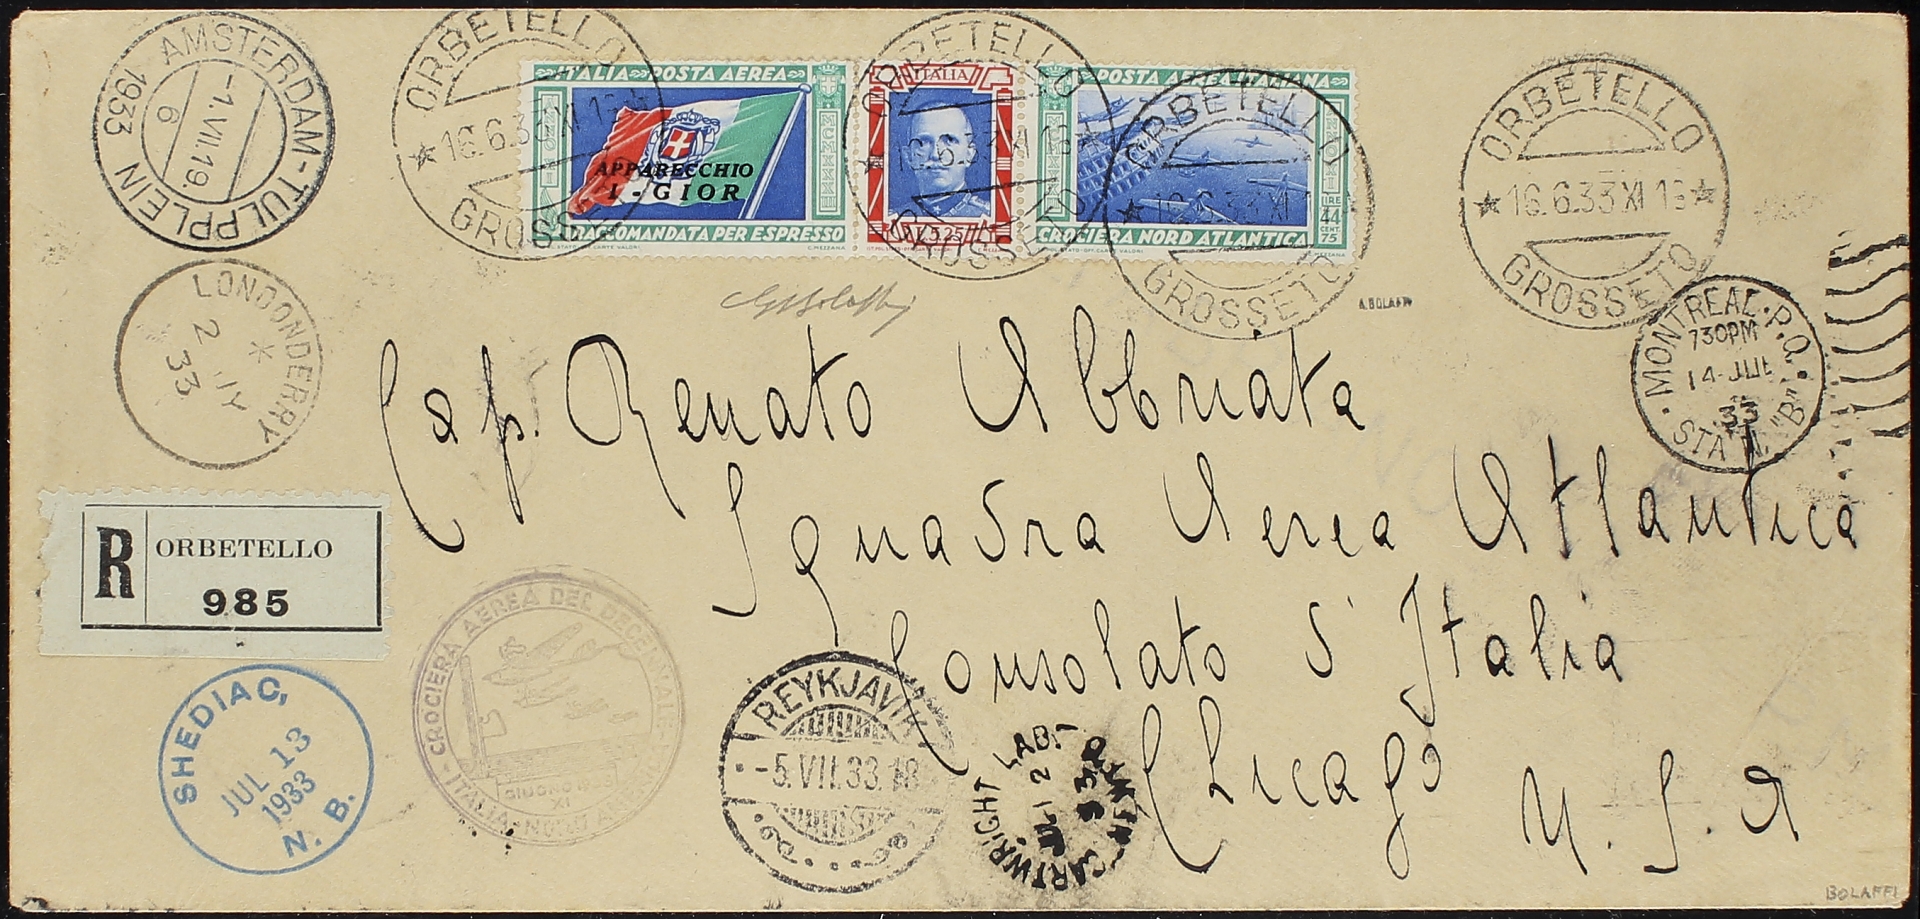 AMSTERDAM-TULPPLEIN 1933
-1.VII.19.
6
ORBETELLO
16.6.33 XI
GROSSETO
ITALIA POSTA AEREA
APPARECCHIO
I-GIOR
RACCOMANDATA PER ESPRESSO
ITALIA
5.25
POSTA AEREA ITALIANA
LIRE
44
CENT.
75
CROCIERA NORD ATLANTICA
C. MEZZANA
C. MEZZANA
ORBETELLO
16.6.33 XI
GROSSETO
ORBETELLO
16.6.33 XI
GROSSETO
ORBETELLO
16.6.33 XI 19
GROSSETO
A. BOLAFFI
LONDONDERRY
2 JY
33
MONTREAL P.Q.
730PM
14-JUL
33
STA'N. "B"
Cap. Renato Abbriata
Squadra Aerea Atlantica
Consolato d'Italia
Chicago
U.S.A
R
ORBETELLO
985
SHEDIAC,
JUL 13
1933
N.B.
CROCIERA AEREA DEL DECENNALE
GIUGNO
XI
ITALIA-NORD
REYKJAVIK
-5.VII.33.18
CARTWRIGHT LAB.
JUL 12
33
BOLAFFI